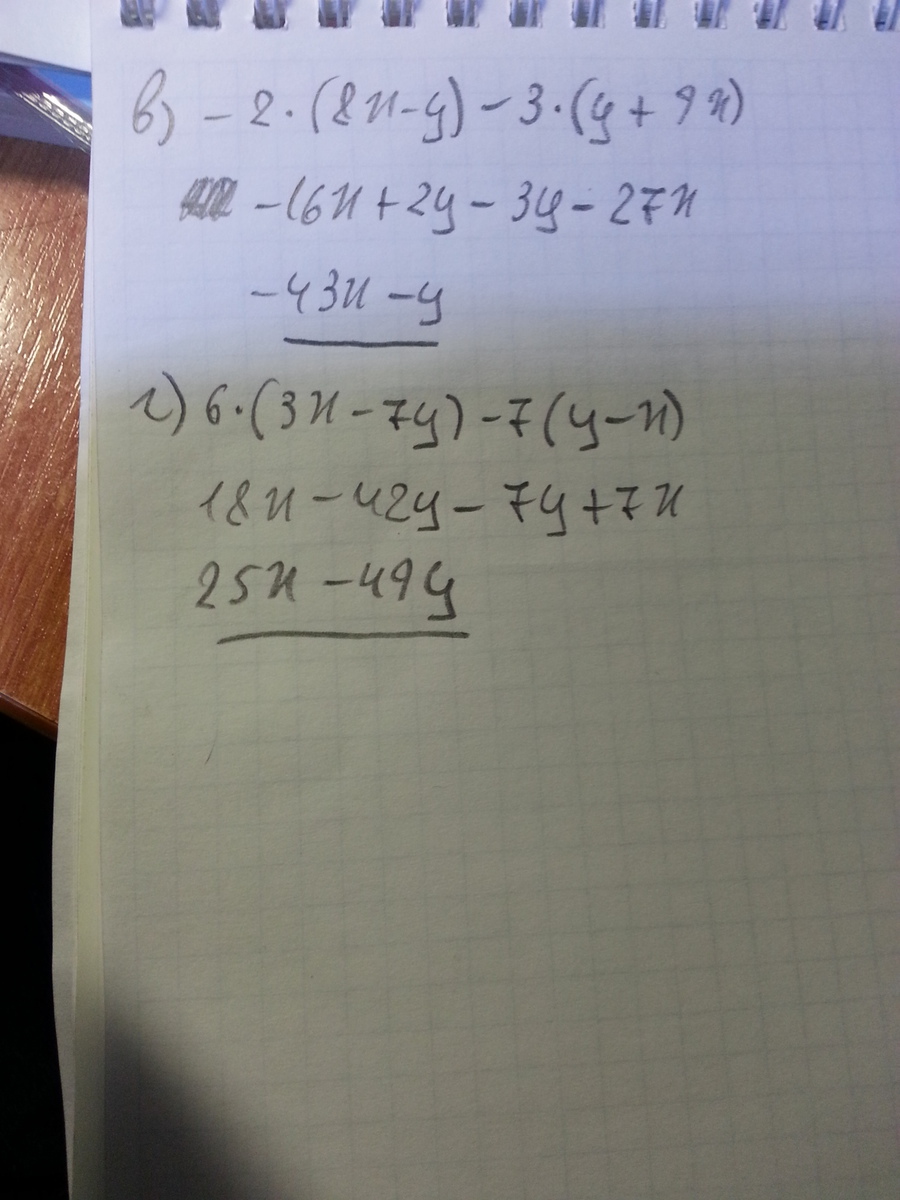 в) -2·(8x-y)-3·(y+9x)
-16x+2y-3y-27x
-43x-y
г) 6·(3x-7y)-7(y-x)
18x-42y-7y+7x
25x-49y